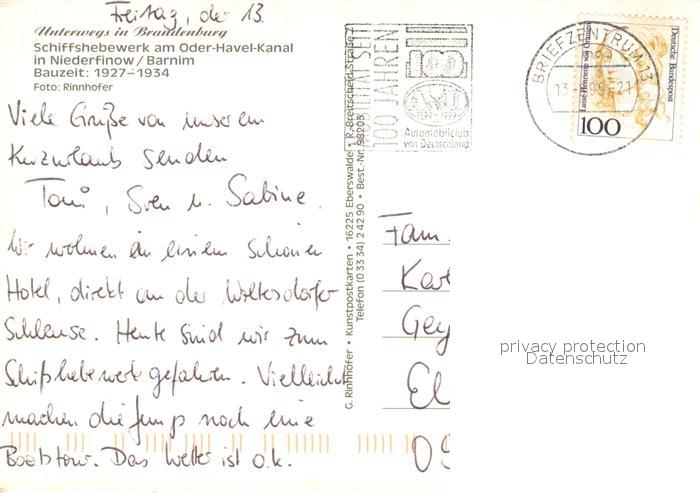 Freitag, der 13.
Unterwegs in Brandenburg
Schiffshebewerk am Oder-Havel-Kanal
in Niederfinow / Barnim
Bauzeit: 1927–1934
Foto: Rinnhofer
Viele Grüße von unserem
Kurzurlaub senden
Toni, Sven u. Sabine.
Wir wohnen in einem schönen
Hotel, direkt an der Woltersdorfer
Schleuse. Heute sind wir zum
Schiffshebewerk gefahren. Vielleicht
machen die Jungs noch eine
Bootstour. Das Wetter ist o.k.
G. Rinnhofer • Kunstpostkarten • 16225 Eberswalde • R.-Breitscheid-Straße 7
Telefon (0 33 34) 2 42 90 • Best.-Nr. 98203
MOBILITÄT SEIT
100 JAHREN
1899 - 1999
Automobilclub
von Deutschland
BRIEFZENTRUM 13
Deutsche Bundespost
Luise Henriette von Oranien
100
Fam.
Kar
Gey
El
09
privacy protection
Datenschutz